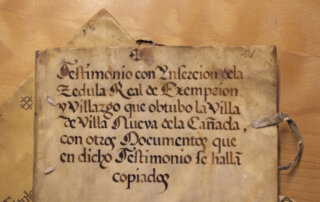 Testimonio con Ynsercion dela
Zedula Real de Exempcion
y Villazgo que obtubo la Villa
de Villa Nueva dela Cañada,
con otros Documentos que
en dicho Testimonio se hallan
copiados